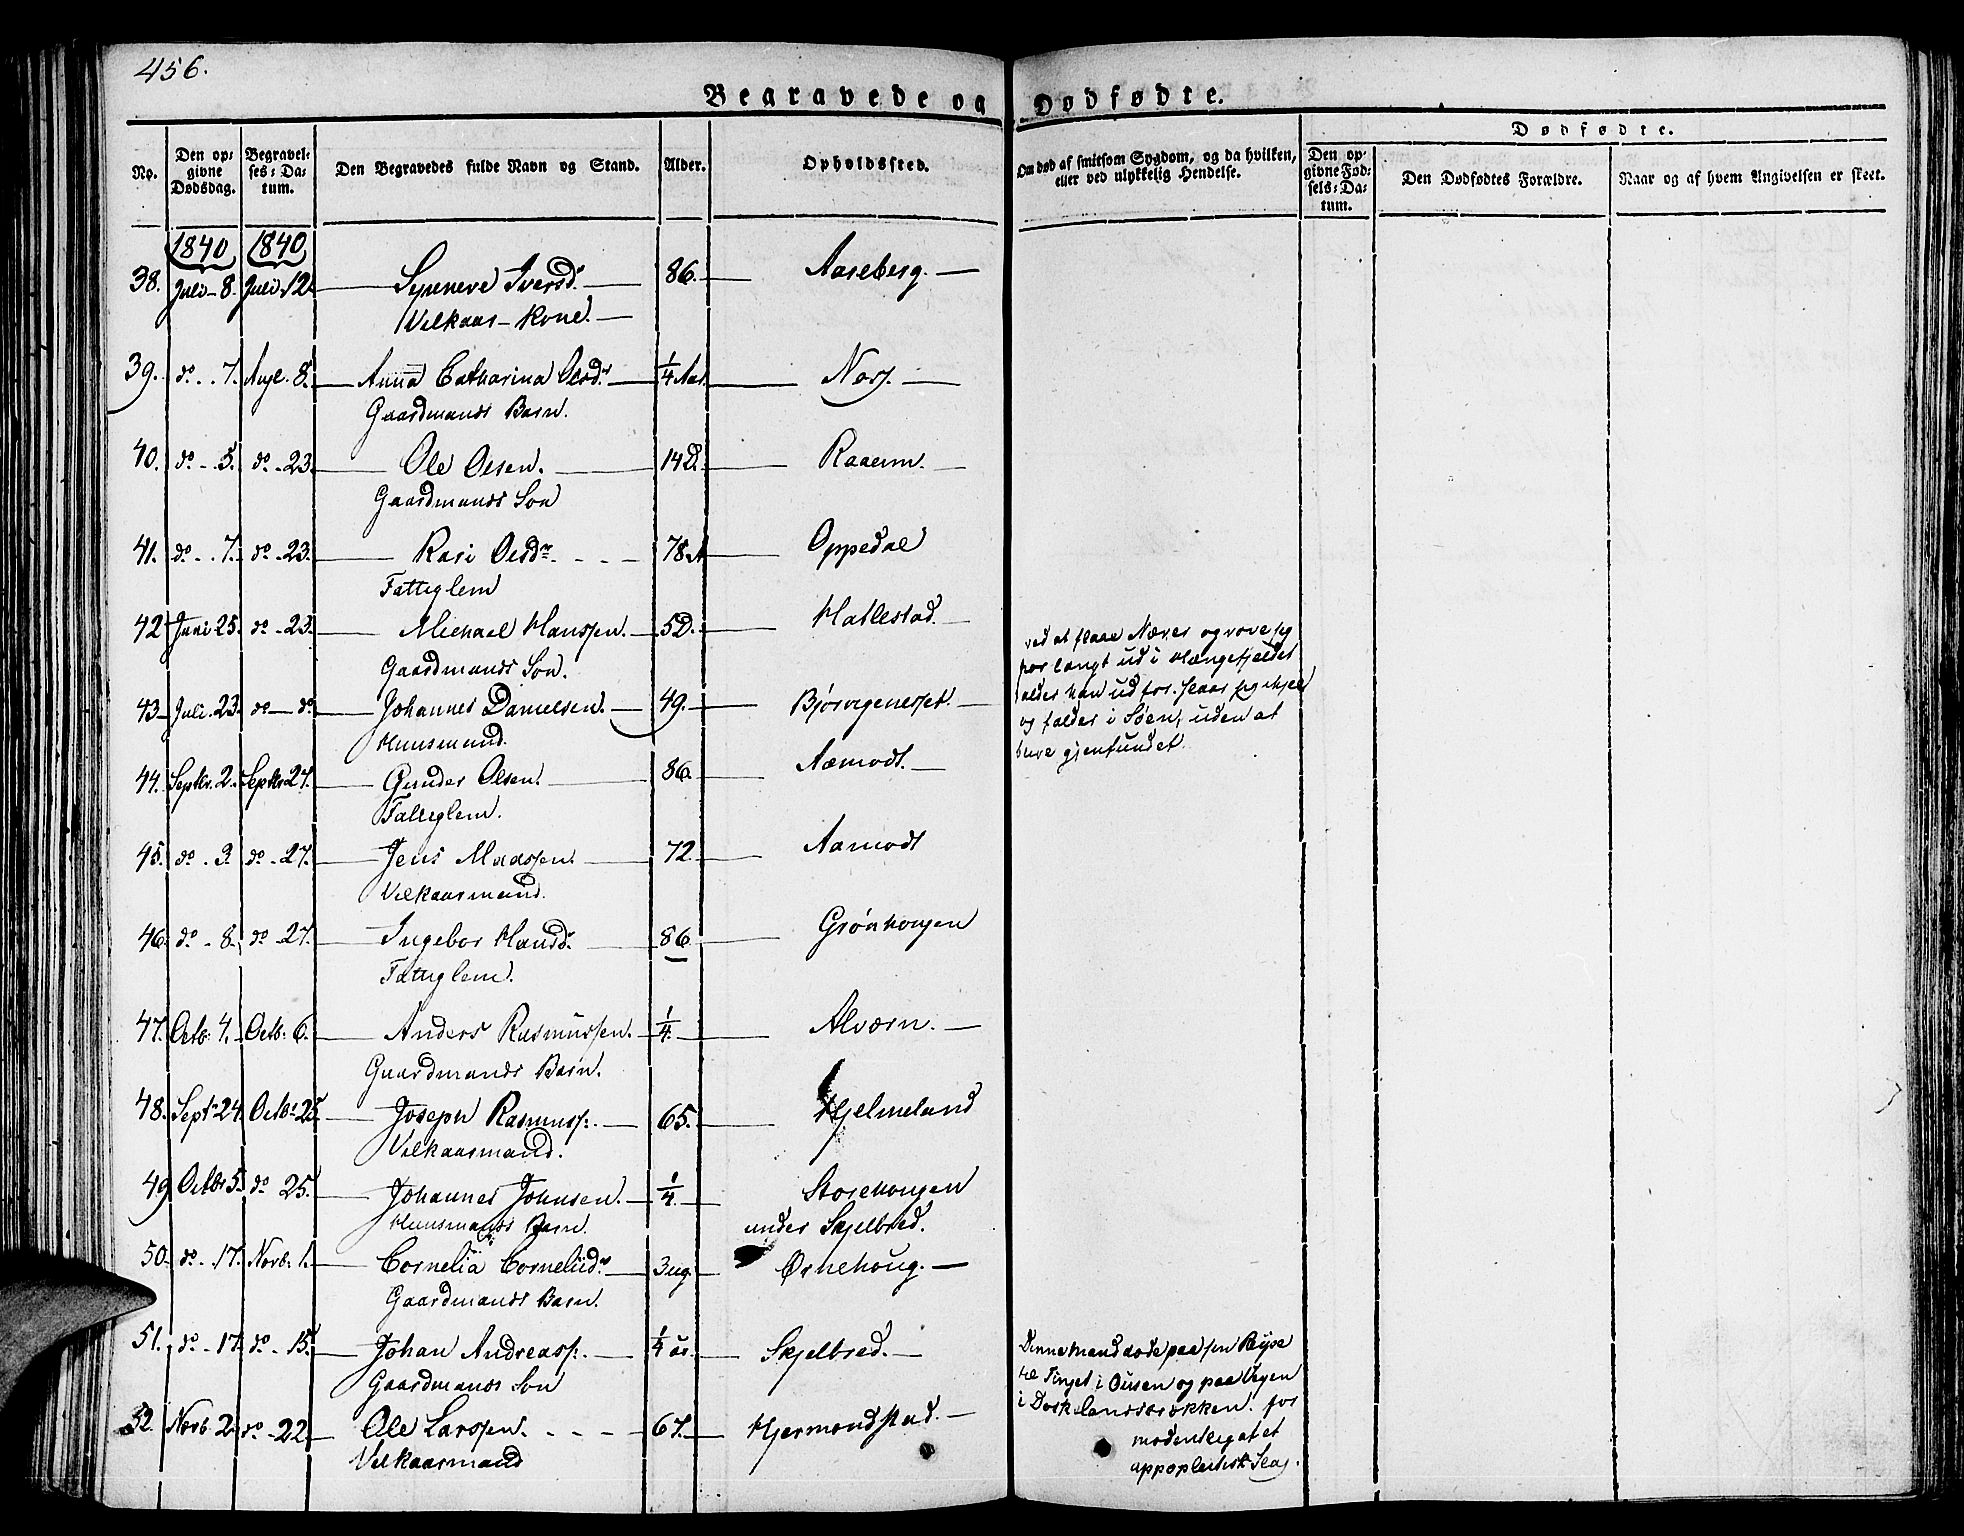 456.
Begravede og Dødfødte.
Dødfødte.
No.
Den op-
givne
Dødsdag.
Begravel-
ses-Da-
tum.
Den Begravedes fulde Navn og Stand.
Alder.
Opholdssted.
Om død af smitsom Sygdom, og da hvilken,
eller ved ulykkelig Hendelse.
Den op-
givne Fød-
sels-Da-
tum.
Den Dødfødtes Forældre.
Naar og af hvem Angivelsen er skeet.
1840 1840
38. Juli-8. Juli 12. Synneve Iversd. 86. Aareberg.
Velkaars-Kone.
39. do. 7. Aug. 8. Anna Catharina Olsdr. 1/4 Aar. Nors.
Gaardmands Barn.
40. do. 5. do. 23. Ole Olsen. 14 D.
Gaardmands Søn
41. do. 7. do. 23. Rasi Olsdr. 78 A Oppedal
Fattiglem
42 Juni 25. do. 23. Michael Hanssen. 52. Hatlestad.
Gaardmands Søn.
43 Juli. 23. do do. Johannes Danielsen. 49.
Huusmand.
ved at flaae Næver og vove sig
for langt ud i Hængefjeldet
falder han ud for. slaar sig ihjel
og falder i Søen, uden at
bleve gjenfundet.
44. Septbr. 2. Septbr 27. Gunder Olsen. 86. Aamodt.
Fattiglem.
45. do. 3. do. 27. Jens Madssen. 72. Aamodt
Velkaarsmand.
46. do. 8. do. 27. Ingebor Hansd. 86. Grønhougen
Fattiglem.
47. Octb: 4. Octb: 6. Anders Rasmussen. 1/4. Alværn.
Gaardmands Barn.
48. Sept. 24. Octbr 25. Joseph Rasmuss. 65. Hjelmeland
Velkaarsmand.
49 Octbr 5. do 25. Johannes Johnsen. 1/4. Storehougen
Huusmands Barn. under Skjelbred.
50. do. 17. Novb. 1. Cornelia Corneliidr. 3 ug. Ørnehoug.
Gaardmands Barn.
51. do. 17. do. 15. Johan Andreass. 1/4 år. Skjelbred.
Gaardmands Søn
52. Novb. 2. do. 22. Ole Larssen. 67. Hjermondstad.
Velkaarsmand
Denne Mand døde paa sin Reyse
til Tinget i Ousen og paa Vegen
i for
modentlig at et
appoplectisk Slag.